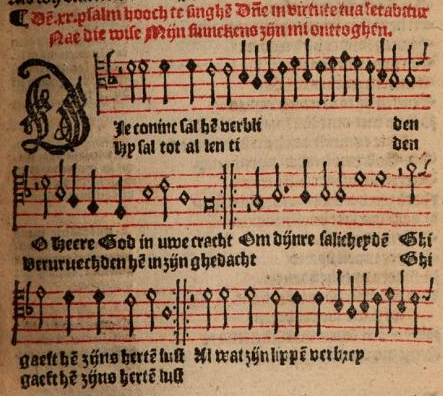 ¶ Dē. xx. psalm hooch te singhē Dn̄e in virtute tua letabitur
Nae die wise Mijn sinnekens zijn mi onttoghen.
Die coninc sal hē verbli den
Hy sal tot al len ti den
O Heere God in uwe cracht Om dijnre salicheydē Ghi
Veruruechden hē in zijn ghedacht Ghi
gaeft hē zijns hertē lust Al wat zijn lippē verbrey
gaeft hē zijns hertē lust